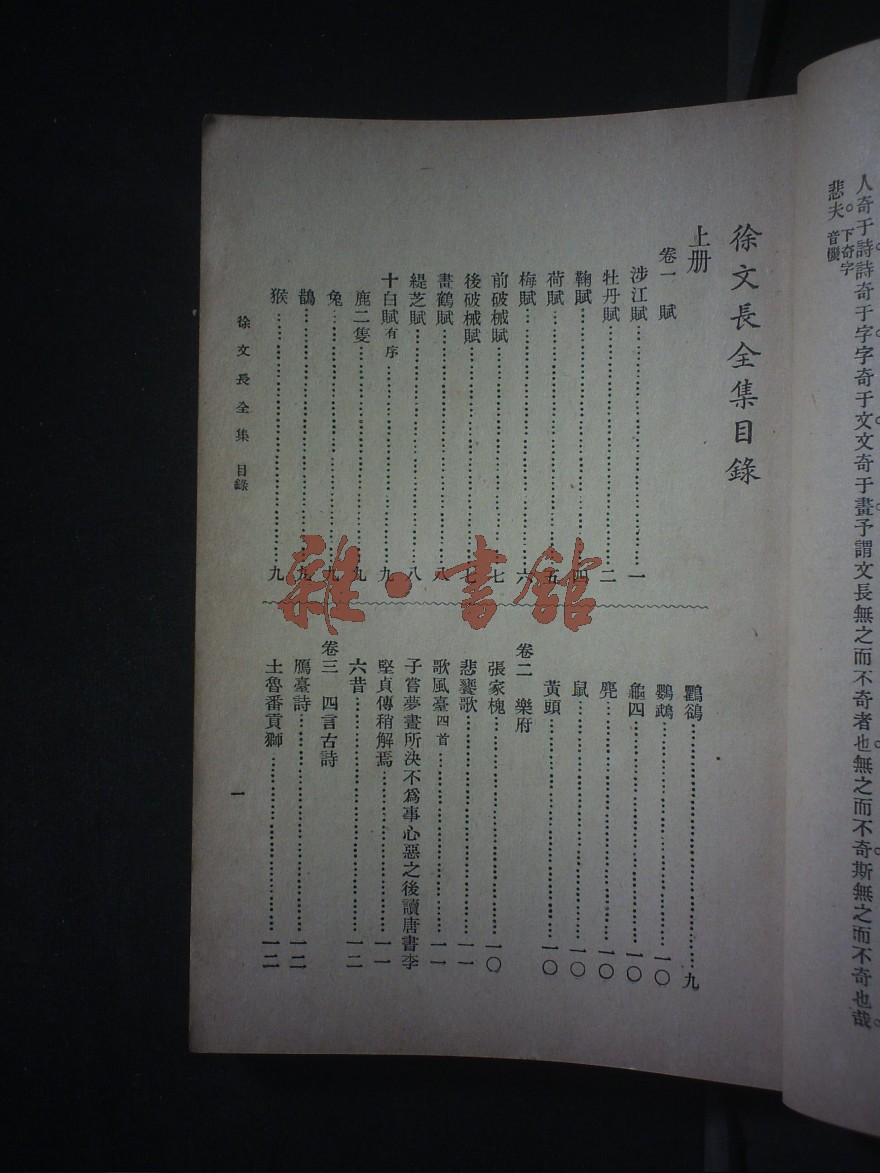 人奇于詩詩奇于字字奇于文文奇于畫予謂文長無之而不奇者也無之而不奇斯無之而不奇也哉
悲夫下奇字音
徐文長全集目錄
上册
卷一 賦
涉江賦 一
牡丹賦 二
鞠賦 四
荷賦 五
梅賦 六
前破械賦 七
後破械賦 七
畫鶴賦 八
緹芝賦 八
十白賦有序 九
鹿二隻 九
兔 九
鵲 九
猴 九
鸜鵒 九
鸚鵡 一〇
龜四 一〇
麂 一〇
鼠 一〇
黃頭 一〇
卷二 樂府
張家槐 一〇
悲饕歌 一一
歌風臺四首 一一
子嘗夢畫所決不爲事心惡之後讀唐書李
堅貞傳稍解焉 一一
六昔 一二
卷三 四言古詩
鴈臺詩 一二
土魯番貢獅 一二
徐文長全集 目錄
一
雜·書館